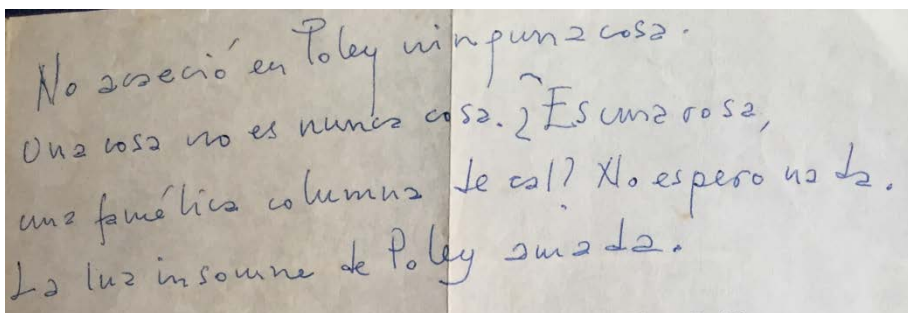 No acaeció en Poley ninguna cosa.
Una cosa no es nunca cosa. ¿Es una rosa,
una famélica columna de cal? No espero nada.
La luz insomne de Poley amada.